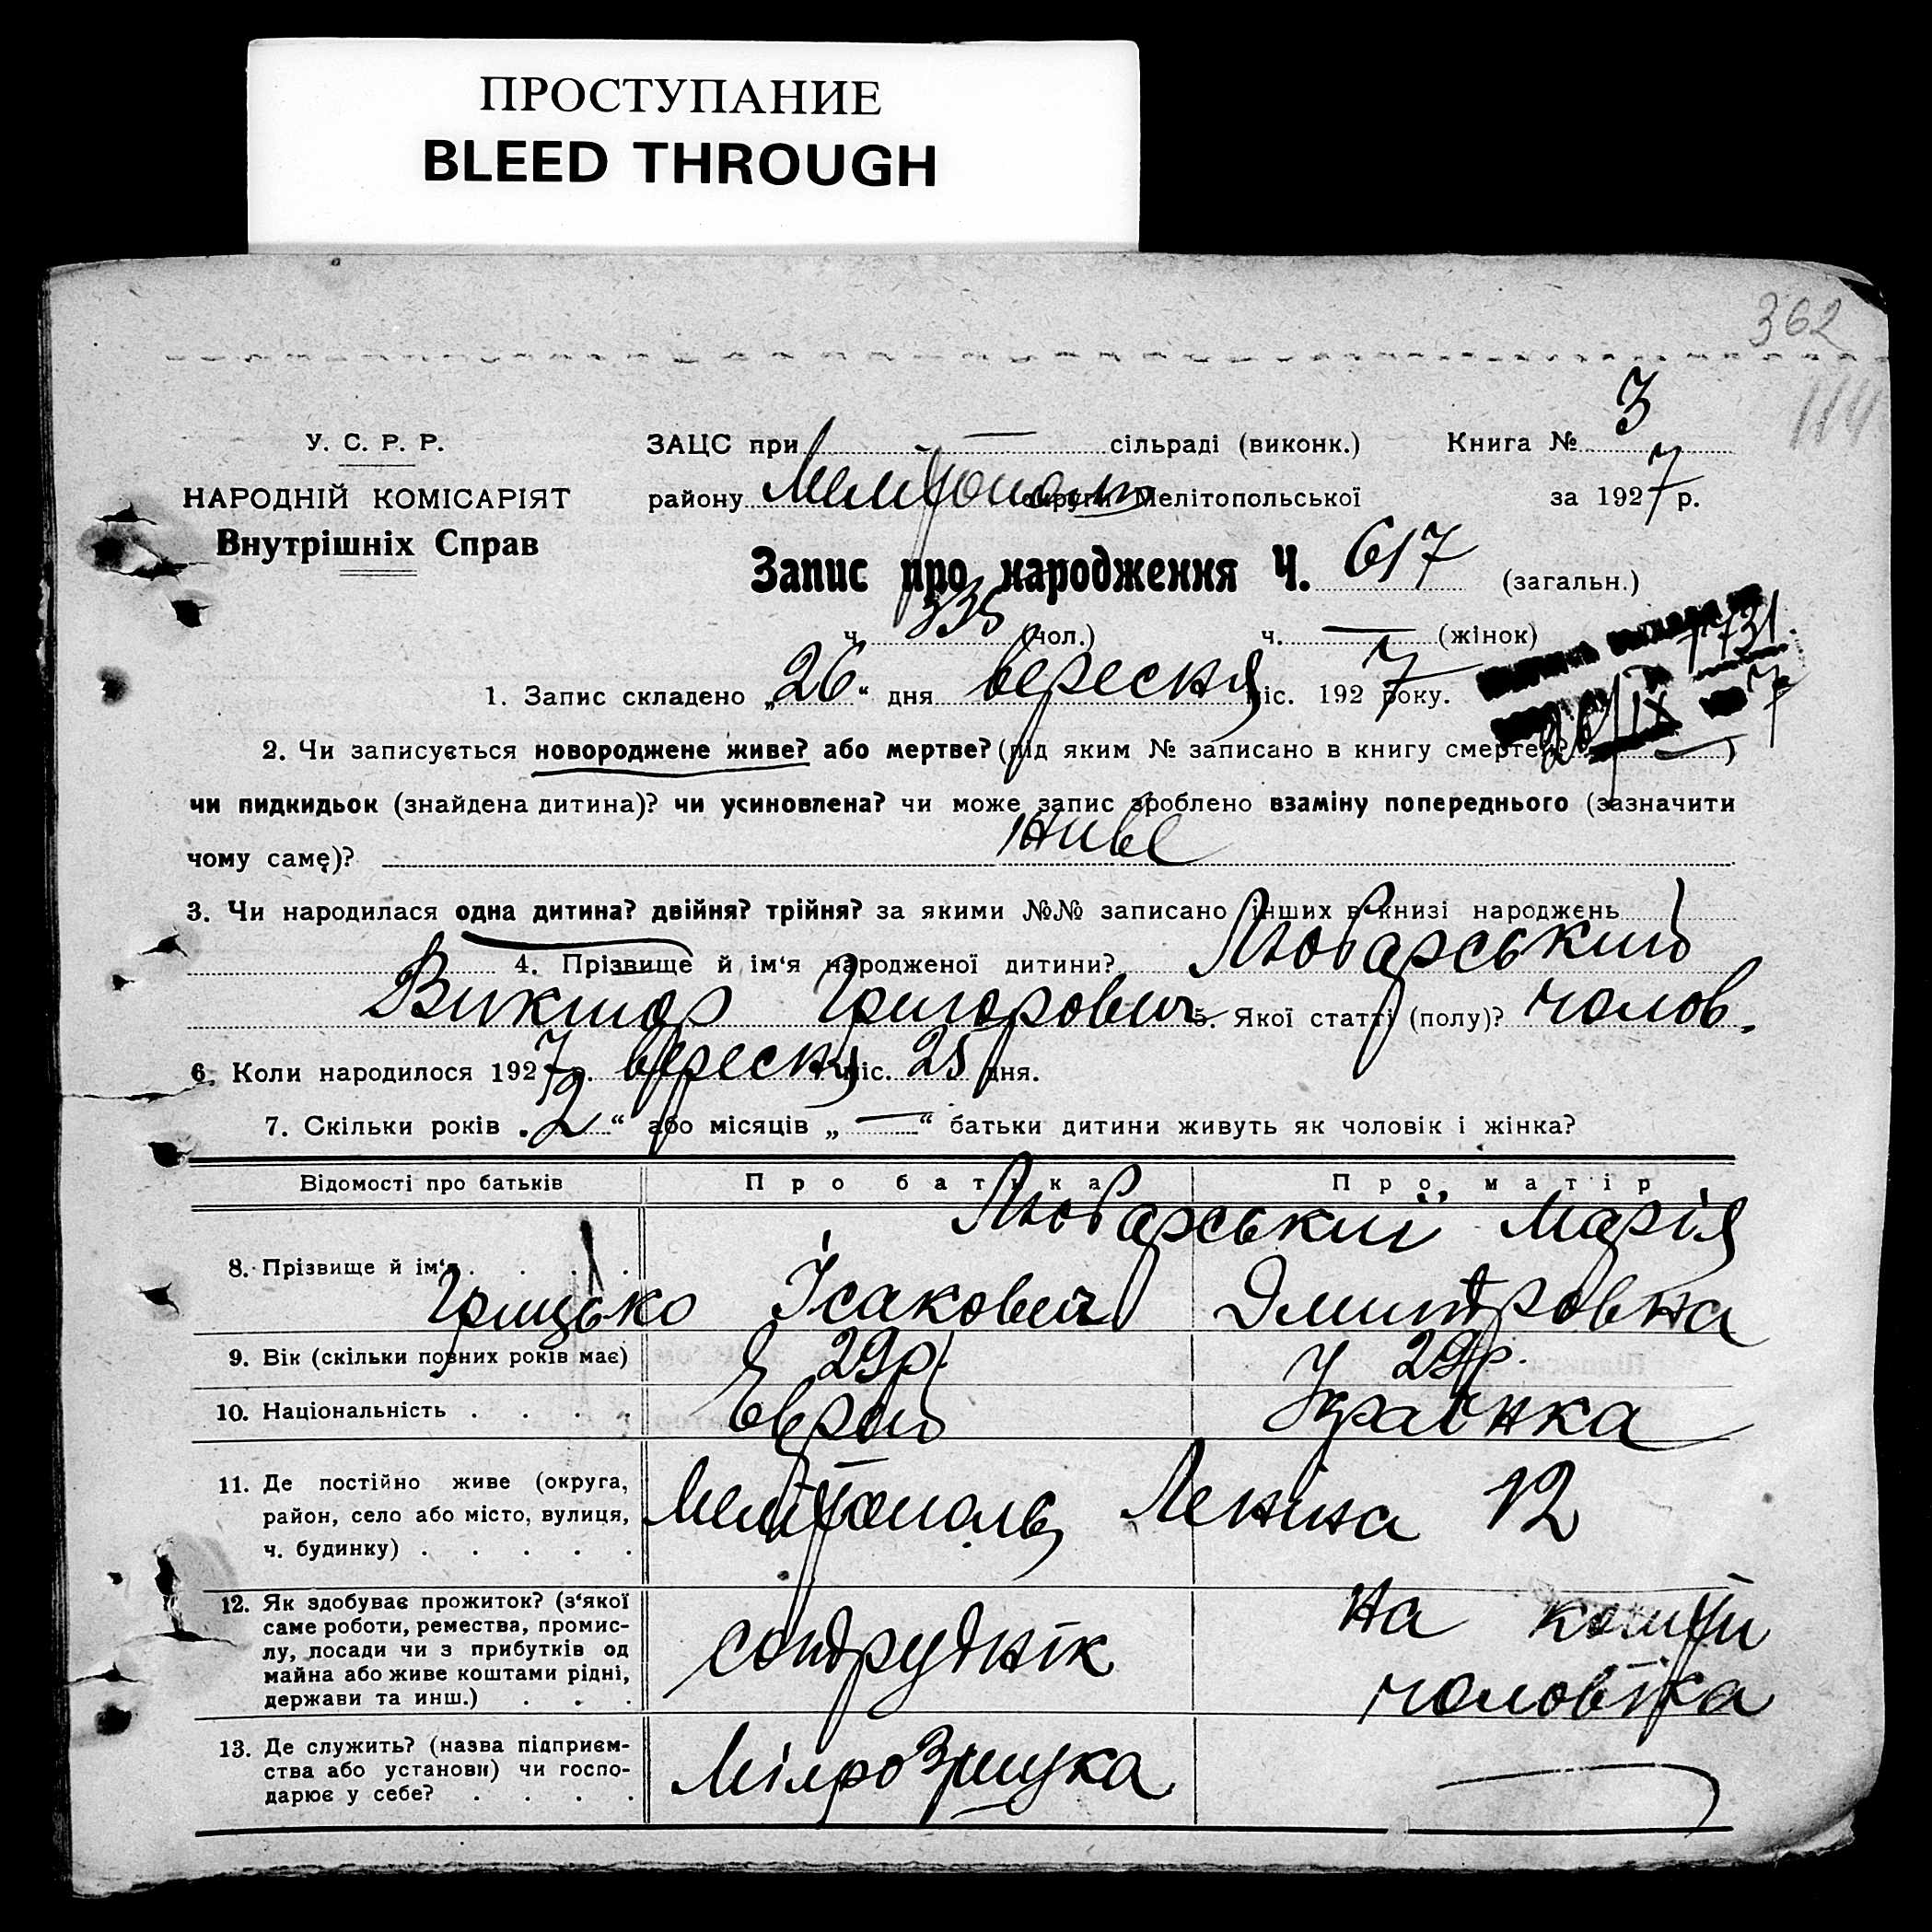 ПРОСТУПАНИЕ
BLEED THROUGH
362
114
У. С. Р. Р.
НАРОДНІЙ КОМІСАРІЯТ
Внутрішніх Справ
ЗАЦС при — сільраді (виконк.) Книга № 3
району Мелітополь округи Мелітопольської за 1927 р.
Запис про народження Ч. 617 (загальн.)
ч. 335 (чол.) ч. — (жінок)
7731
26/IX 7
1. Запис складено „26“ дня вересня міс. 1927 року.
2. Чи записується новороджене живе? або мертве? (під яким № записано в книгу смертей? —)
чи пидкидьок (знайдена дитина)? чи усиновлена? чи може запис зроблено взаміну попереднього (зазначити
чому саме)? живе
3. Чи народилася одна дитина? двійня? трійня? за якими №№ записано інших в книзі народжень
4. Прізвище й ім‘я народженої дитини? Любарський
Виктор Григорович 5. Якої статті (полу)? чолов.
6. Коли народилося 1927 р. вересня міс. 25 дня.
7. Скільки років „2“ або місяців „—“ батьки дитини живуть як чоловік і жінка?
Відомості про батьків Про батька Про матір
Любарський Марія
8. Прізвище й ім‘я . . . .
Грицько Ісакович Дмитровна
9. Вік (скільки повних років має) 29 р. 29 р.
10. Національність . . . . Еврей Украінка
11. Де постійно живе (округа,
район, село або місто, вулиця,
ч. будинку) . . . . .
Мелітополь Леніна 12
12. Як здобуває прожиток? (з‘якої
саме роботи, ремества, промис-
лу, посади чи з прибутків од
майна або живе коштами рідні,
держави та инш.) . . .
сотрудтнік
на кошти
чоловіка
13. Де служить? (назва підприєм-
ства або установи) чи госпо-
дарює у себе? . . . .